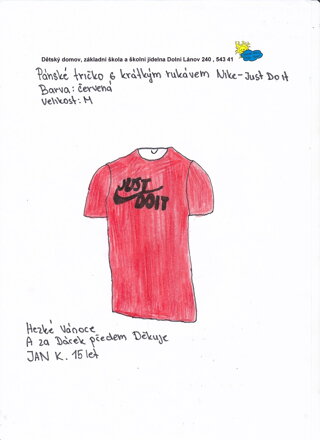 Dětský domov, základní škola a školní jídelna Dolní Lánov 240 , 543 41
Pánské tričko s krátkým rukávem Nike-Just Do it
Barva: červená
Velikost: M
JUST
DO IT
Hezké Vánoce
A za Dárek předem Děkuje
JAN K. 15 let